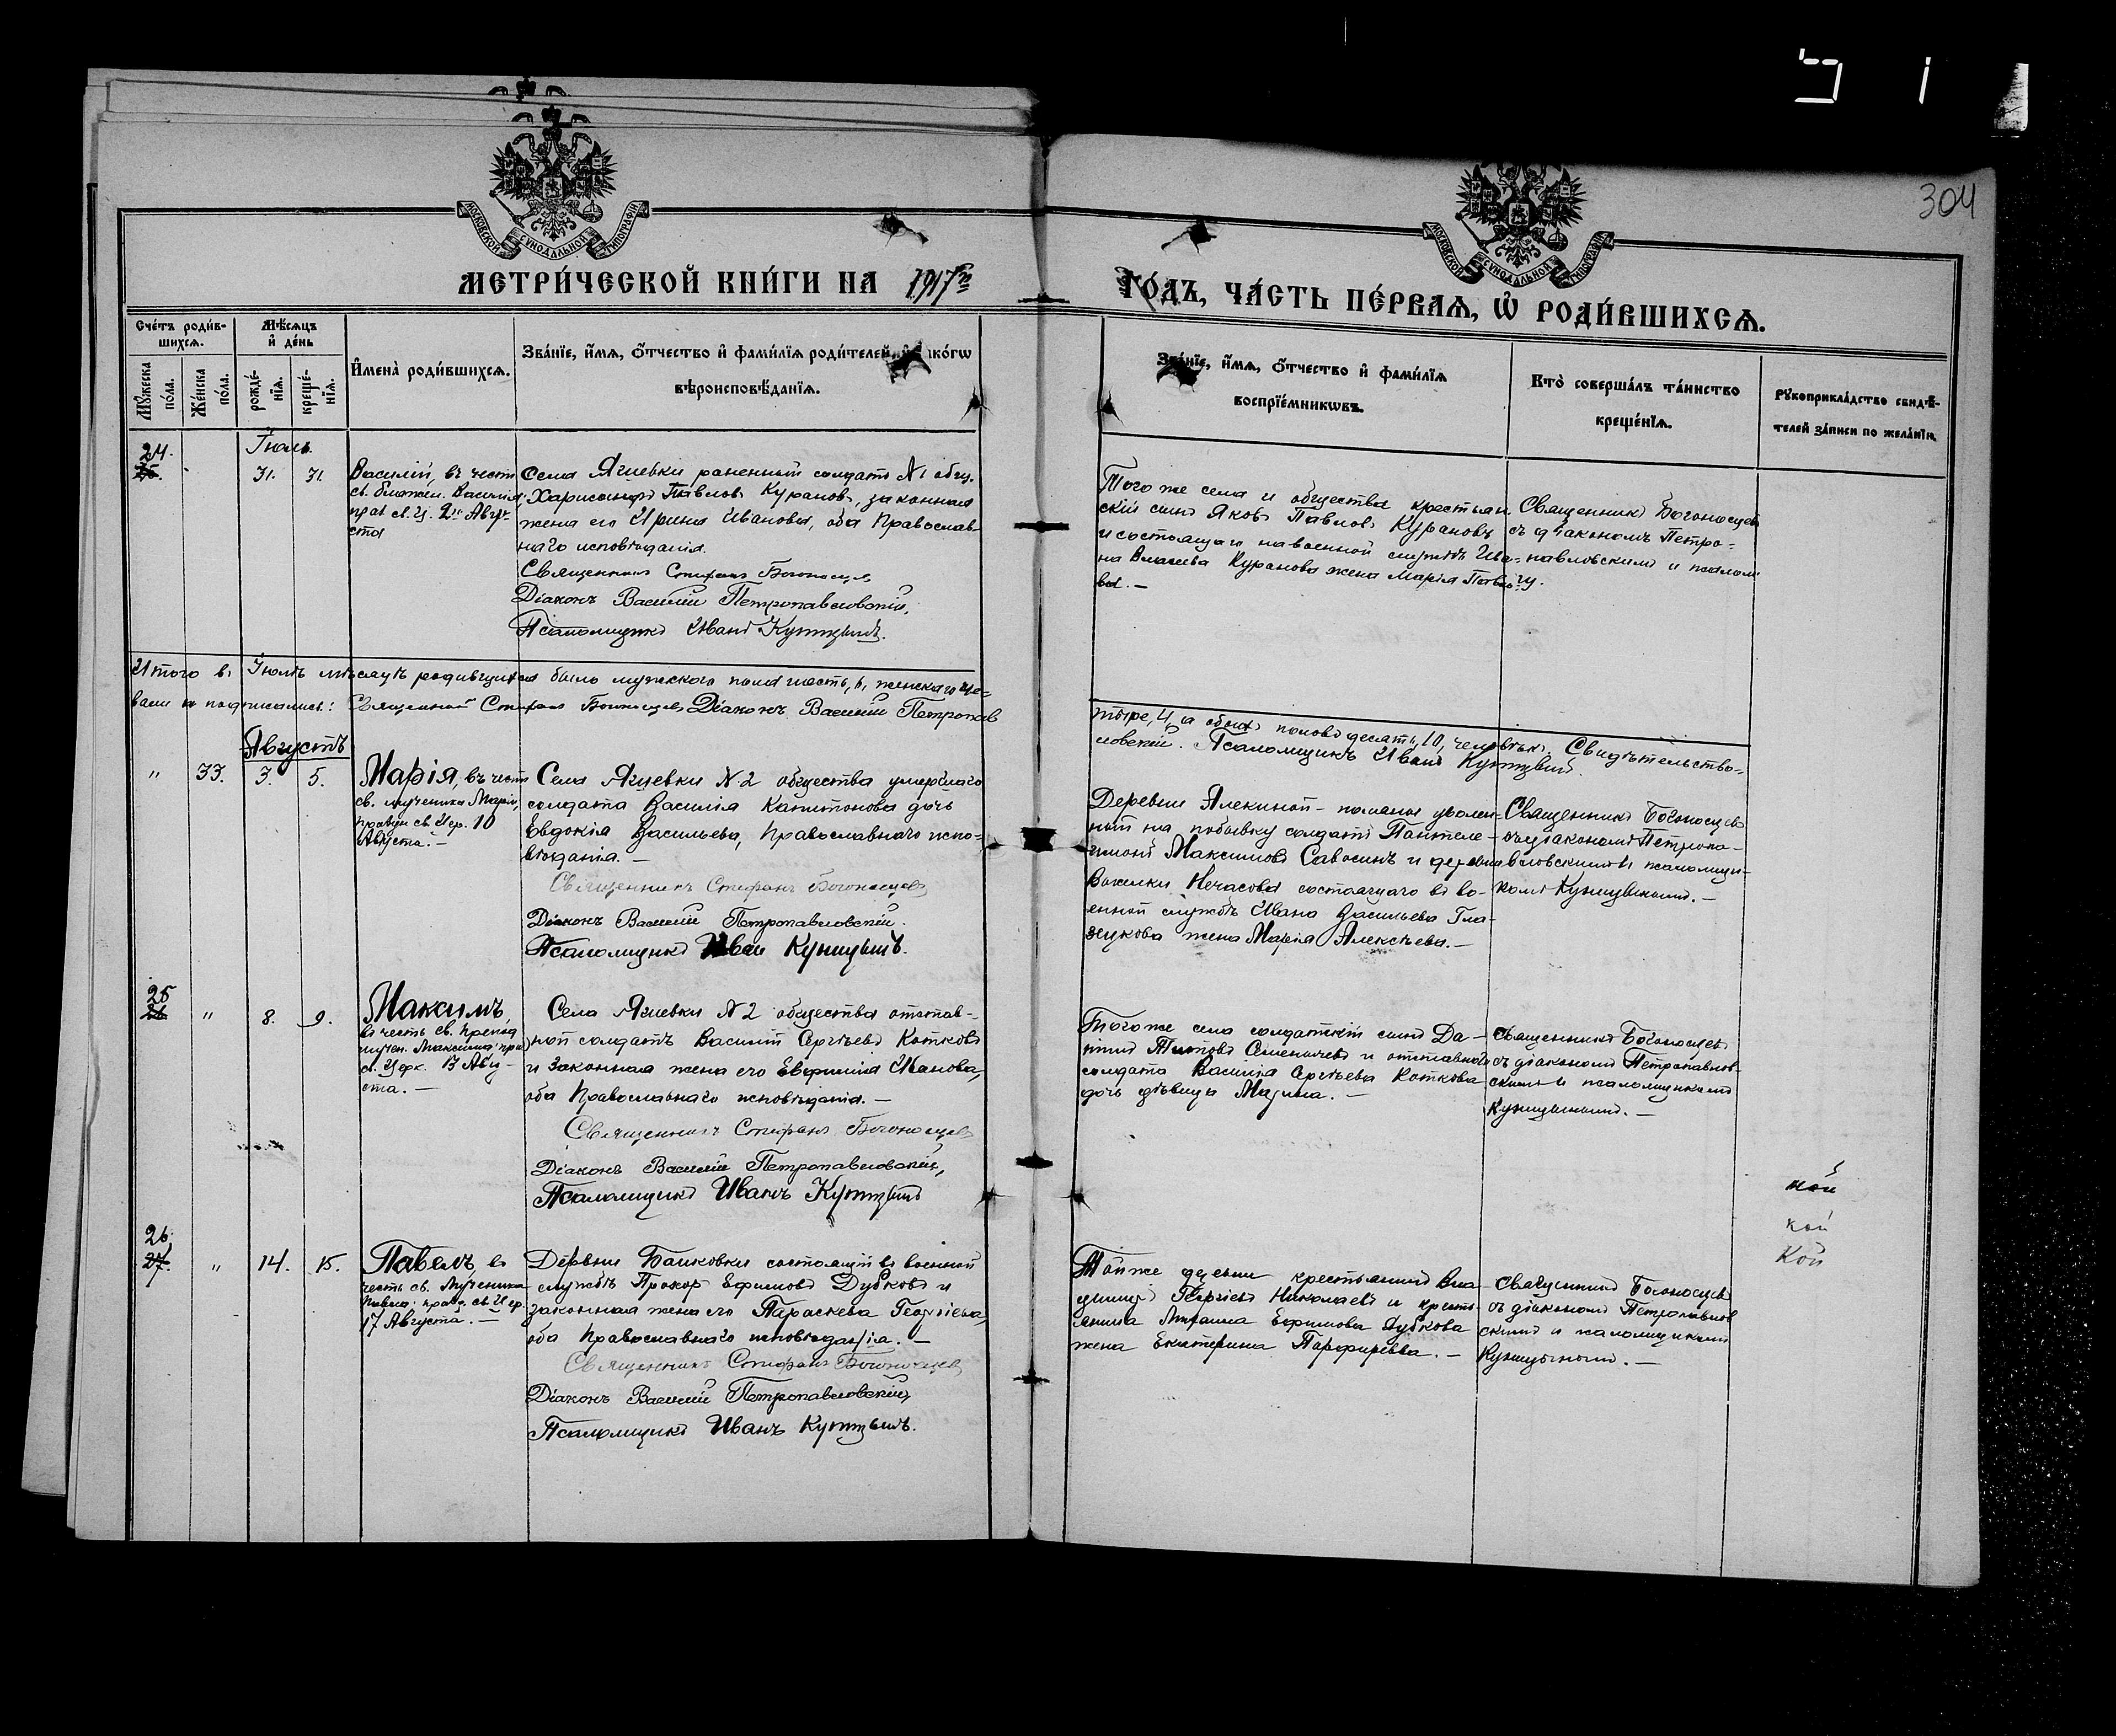 304
МОСКОВСКОЙ СѴНОДАЛЬНОЙ ТИПОГРАФІИ
МОСКОВСКОЙ СѴНОДАЛЬНОЙ ТИПОГРАФІИ
МЕТРИ́ЧЕСКОЙ КНИ́ГИ НА 1917го
ГО́ДЪ, ЧА́СТЬ ПЕ́РВАѦ, Ѡ҆ РОДИ́ВШИХСѦ.
Сче́тъ роди́в-
шихсѧ.
Мꙋ́жеска по́ла.
Же́нска по́ла.
Мѣ́сѧцъ
и҆ де́нь
рожде́-
нїѧ.
креще́-
нїѧ.
И҆мена̀ роди́вшихсѧ.
Зва́нїе, и҆́мѧ, ѻ҆́тчество и҆ фами́лїѧ роди́телей, и҆ како́гѡ
вѣроисповѣ́данїѧ.
Зва́нїе, и҆́мѧ, ѻ҆́тчество и҆ фами́лїѧ
воспрїе́мникѡвъ.
Кто̀ соверша́лъ та́инство
креще́нїѧ.
Рꙋкоприкла́дство свидѣ́-
телей за́писи по жела́нїю.
Іюль
24.
31.
31.
Василій, въ честь
св. блажен. Василія,
2го Авгу-
ста
Села Ячневки раненный солдатъ №1 общ.
Харисанфъ Павловъ Курановъ, законная
жена его Ирина Иванова, оба Православ-
наго исповѣданія.
Священникъ Стефанъ Богоносцев
Діаконъ Василій Петропавловскій,
Псаломщикъ Иванъ
Того же села и общества крестьян-
скій сынъ Яковъ Павловъ Курановъ
и состоящаго на военной службѣ Ива-
на Власьева Куранова жена Марія Павло-
ва. —
Священникъ Богоносцевъ
съ діакономъ Петро-
павловскимъ и псалом
Итого въ Іюлѣ мѣсяцѣ родившихся было мужского пола шесть, 6, женскаго че-
тыре, 4, а обоихъ половъ десять, 10, человѣкъ. Свидѣтельство-
вали и подписались: Священникъ Стефанъ Богоносцевъ, Діаконъ Василій Петропав
ловскій. Псаломщикъ Иванъ
Августъ
"
33.
3.
5.
Марія, въ честь
св. мученицы Маріи,
св. Цер. 10
Августа. —
Села Ячневки №2 общества умершаго
солдата Василія Капитонова дочь
Евдокія Васильева, Православнаго испо-
вѣданія. —
Священникъ Стефанъ Богоносцевъ
Діаконъ Василій Петропавловскій.
Псаломщикъ Иван
Деревни Алекиной -
ный на побывку солдатъ Пантеле-
имонъ Максимовъ Савосинъ и деревни
состоящаго въ во-
енной службѣ Ивана Васильева Гла-
зукова жена Марія Алексѣева. —
Священникъ Богоносцевъ
съ діакономъ Петропа-
вловскимъ и псаломщи-
комъ
25
"
8.
9.
Максимъ,
въ честь св. препод
мучен. Максима
св. Церк. 13 Авгу-
ста. —
Села Ячневки №2 общества отстав-
ной солдатъ Василій Сергѣевъ Котковъ
и законная жена его Евфимія Иванова,
оба Православнаго исповѣданія. —
Священникъ Стефанъ Богоносцевъ
Діаконъ Василій Петропавловскій,
Псаломщикъ Иванъ
Того же села солдатскій сынъ Да-
Титовъ и отставного
солдата Василія Сергѣева Коткова
дочь дѣвица Марина. —
Священникъ Богоносцевъ
съ діакономъ Петропавлов-
скимъ и псаломщикомъ
26.
27.
"
14.
15.
Павелъ, въ
честь св. Мученика
Павла: св. Цер.
17 Августа. —
Деревни Банковки состоящій въ военной
службѣ Прохоръ Ефимовъ Дубковъ и
законная жена его Параскева Георгіева,
оба Православнаго исповѣданія. —
Священникъ Стефанъ Богоносцевъ
Діаконъ Василій Петропавловскій,
Псаломщикъ Иванъ
Той же деревни крестьянинъ Вла
Георгіевъ Николаевъ и кресть-
янина Ефимова Дубкова
жена Екатерина Порфирьева. —
Священникъ Богоносцевъ
съ діакономъ Петропавлов
скимъ и псаломщикомъ
кой
кой
Кой